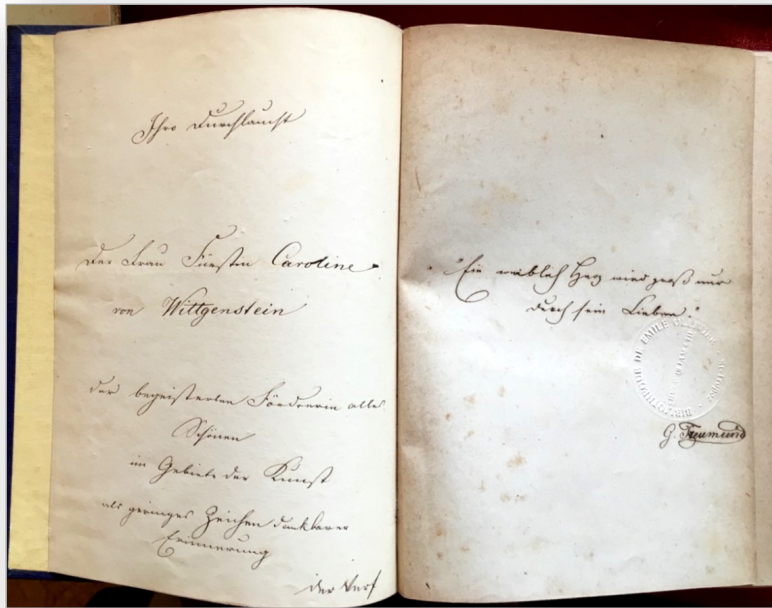 Ihro Durchlaucht
Der Frau Fürstin Caroline
von Wittgenstein
der begeisterten Förderin alles
Schönen
im Gebiete der Kunst
als geringes Zeichen dankbarer
Erinnerung
der Verf
"Ein weiblich Herz wird groß nur
durch sein Lieben."
BIBLIOTHEQUE DE EMILE
G. Freumund